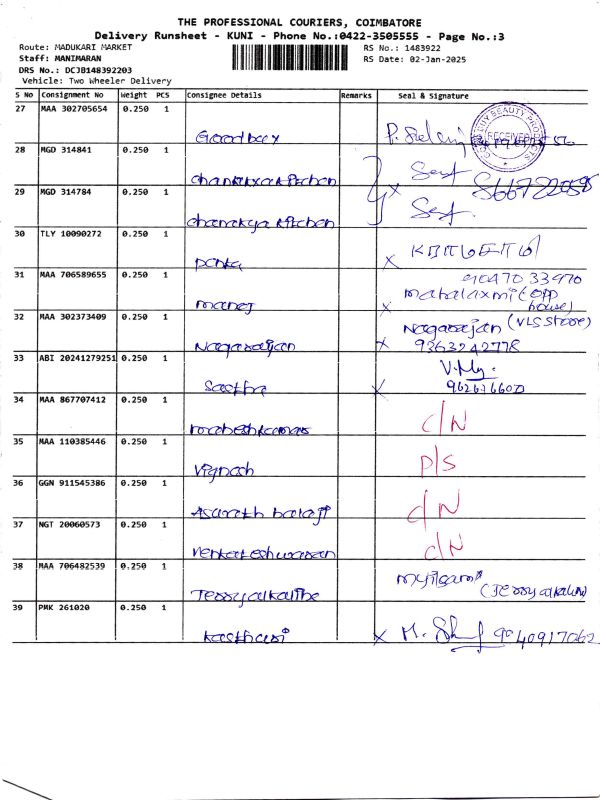 THE PROFESSIONAL COURIERS, COIMBATORE
Delivery Runsheet - KUNI - Phone No.:0422-3505555 - Page No.:3
Route: MADUKARI MARKET RS No.: 1483922
Staff: MANIMARAN RS Date: 02-Jan-2025
DRS No.: DCJB148392203
Vehicle: Two Wheeler Delivery
S No Consignment No Weight PCS Consignee Details Remarks Seal & Signature
27 MAA 302705654 0.250 1
Goodbay
BEAUTY PRODUCTS
RECEIVED
28 MGD 314841 0.250 1
chanakya kitchen
29 MGD 314784 0.250 1
chanakya kitchen
30 TLY 10090272 0.250 1
31 MAA 706589655 0.250 1 90470 33970
mahalaxmi (opp
manoj x house)
32 MAA 302373409 0.250 1 Nagarajan (VLS Store)
Nagarajan x 9363242778
33 ABI 20241279251 0.250 1
Sastha x
34 MAA 867707412 0.250 1 C/N
maheshkumar
35 MAA 110385446 0.250 1 P/S
Vignesh
36 GGN 911545386 0.250 1 C/N
balaji
37 NGT 20060573 0.250 1 C/N
Venkateshwaran
38 MAA 706482539 0.250 1
39 PMK 261020 0.250 1
kasthuri x 9040917062